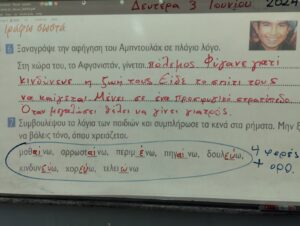 Δευτερα 3 Ιουνίου 2024
γράφω σωστά
6 Ξαναγράψε την αφήγηση του Αμπντουλάχ σε πλάγιο λόγο.
Στη χώρα του, το Αφγανιστάν, γίνεται πόλεμος. Φύγανε γιατί
κινδύνευε η ζωή τους. Είδε το σπίτι τους
να καίγεται. Μένει σε ένα προσφυγικό στρατόπεδο.
Όταν μεγαλώσει θέλει να γίνει γιατρός.
7 Συμβουλέψου τα λόγια των παιδιών και συμπλήρωσε τα κενά στα ρήματα. Μην ξ
να βάλεις τόνο, όπου χρειάζεται.
μαθαίνω, αρρωσταίνω, περιμένω, πηγαίνω, δουλεύω, 4 φορές
κινδυνεύω, χορεύω, τελειώνω + ορθ.